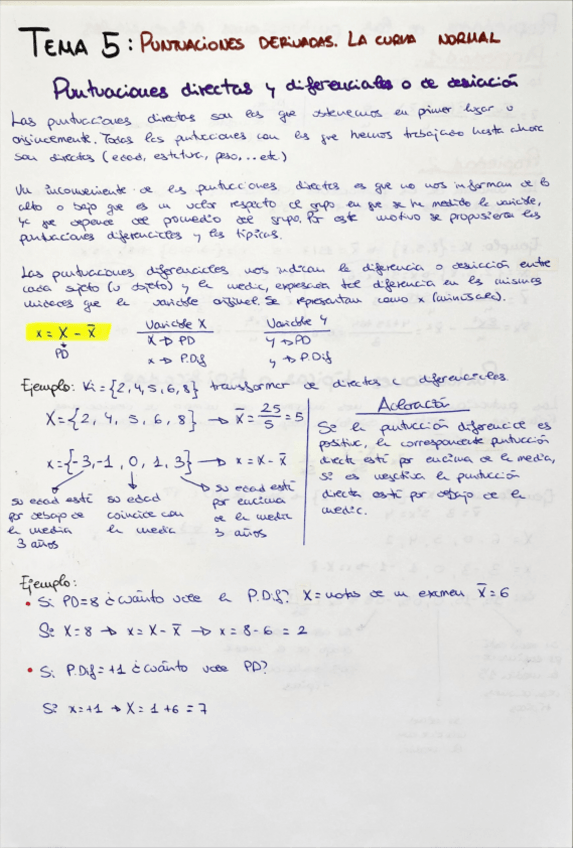 TEMA 5: PUNTUACIONES DERIVADAS. LA CURVA NORMAL
Puntuaciones directas y diferenciales o de desviación
Las puntuaciones directas son las que obtenemos en primer lugar u
originalmente. Todas las puntuaciones con las que hemos trabajado hasta ahora
son directas (edad, estatura, peso, ... etc)
Un inconveniente de las puntuaciones directas es que no nos informan de lo
alto o bajo que es un valor respecto al grupo en que se ha medido la variable,
ya que depende del promedio del grupo. Por este motivo se propusieron las
puntuaciones diferenciales y las típicas.
Las puntuaciones diferenciales nos indican la diferencia o desviación entre
cada sujeto (u objeto) y la media, expresada tal diferencia en las mismas
unidades que la variable original. Se representan como x (minúscula).
x = X - X̄
↓
PD
Variable X
X → PD
x → P.Dif
Variable Y
Y → PD
y → P.Dif
Ejemplo: Xi = {2, 4, 5, 6, 8} transformar de directas a diferenciales
X = {2, 4, 5, 6, 8} → X̄ = 25/5 = 5
x = {-3, -1, 0, 1, 3} → x = X - X̄
su edad está
por debajo de
la media
3 años
su edad
coincide con
la media
su edad está
por encima
de la media
3 años
Aclaración
Si la puntuación diferencial es
positiva, la correspondiente puntuación
directa está por encima de la media,
si es negativa la puntuación
directa está por debajo de la
media.
Ejemplo:
• Si PD = 8 ¿cuánto vale la P.Dif? X = notas de un examen X̄ = 6
Si X = 8 → x = X - X̄ → x = 8 - 6 = 2
• Si P.Dif = +1 ¿cuánto vale PD?
Si x = +1 → X = 1 + 6 = 7